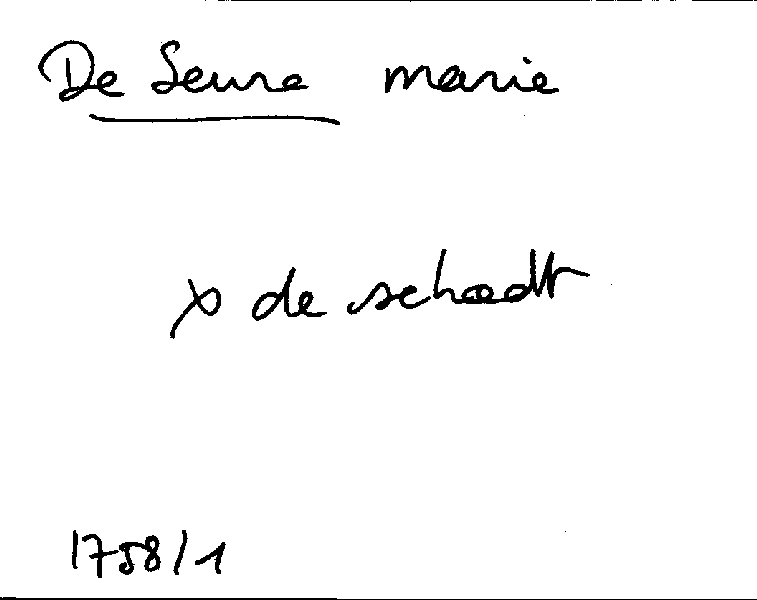 De Seure marie
x de schaedt
1758/1